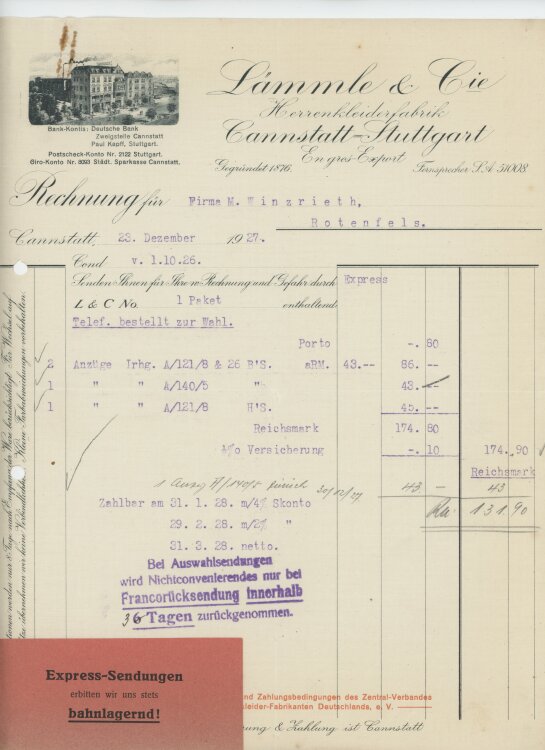 Lämmle & Cie
Herrenkleiderfabrik
Cannstatt-Stuttgart
En gros-Export
Gegründet 1876.
Fernsprecher S.A. 51008
Bank-Kontis: Deutsche Bank
Zweigstelle Cannstatt
Paul Kapff, Stuttgart.
Postscheck-Konto Nr. 2122 Stuttgart.
Giro-Konto Nr. 8093 Städt. Sparkasse Cannstatt.
Rechnung für Firma M. Winzrieth,
Rotenfels.
Cannstatt, 23. Dezember 1927.
Cond v. 1.10.26.
Senden Ihnen für Ihre w Rechnung und Gefahr durch Express
L & C No. 1 Paket enthaltend
Telef. bestellt zur Wahl.
Porto -. 80
2 Anzüge Irhg. A/121/8 & 26 B'S. aRM. 43.-- 86.--
1 " " A/140/5 " 43.--
1 " " A/121/8 H'S. 45.--
Reichsmark 174. 80
Versicherung -. 10 174. 90
Reichsmark
1 Anzug A/140/5 zurück 30/12/27 43 - 43
Zahlbar am 31. 1. 28. m/4% Skonto
Rm 131.90
29. 2. 28. m/2% "
31. 3. 28. netto.
Bei Auswahlsendungen
wird Nichtconvenierendes nur bei
Francorücksendung innerhalb
Tagen zurückgenommen.
Express-Sendungen
erbitten wir uns stets
bahnlagernd!
und Zahlungsbedingungen des Zentral-Verbandes
kleider-Fabrikanten Deutschlands, e. V.
& Zahlung ist Cannstatt